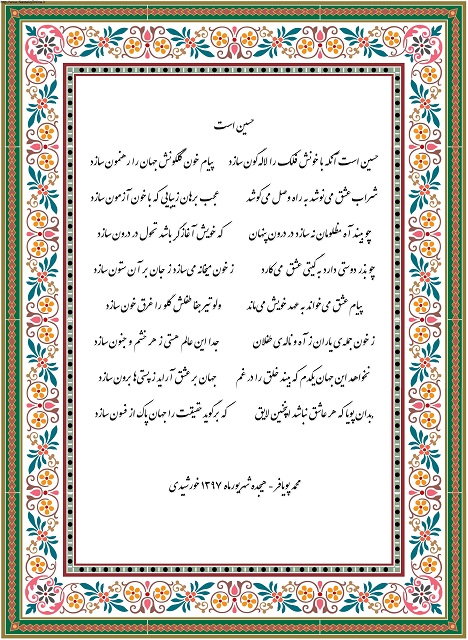 حسین است
حسین است آنکه با خونش فلک را لاله گون سازد پیام خون گلگونش جهان را رهنمون سازد
شراب عشق می‌نوشد به راه وصل می‌کوشد عجب برهان زیبایی که با خون آزمون سازد
چو بیند آه مظلومان نه سازد در درون پنهان که خویش آغازگر باشد تحول در درون سازد
چو بذر دوستی دارد به گیتی عشق می‌کارد ز خون میخانه می‌سازد ز جان بر آن ستون سازد
پیام عشق می‌خواند به عهد خویش می‌ماند ولو تیر جفا طفلش گلو را غرق خون سازد
ز خون جمله‌ی یاران ز آه و ناله‌ی طفلان جدا این عالم هستی ز هر خشم و جنون سازد
نخواهد این جهان یکدم که بیند خلق را در غم جهان بر عشق آراید ز پستی‌ها برون سازد
بدان پویا که هر عاشق نباشد اینچنین لایق که برگوید حقیقت را جهان پاک از فسون سازد
محمد پویافر - هیجده شهریور ماه ۱۳۹۷ خورشیدی